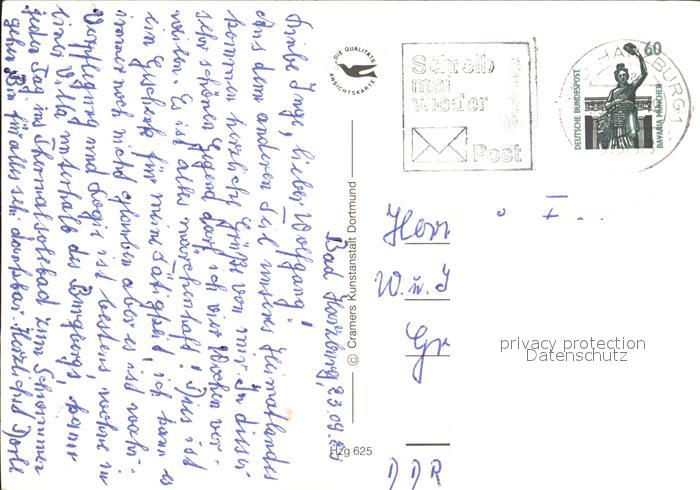 Bad Harzburg, 23.09.
Liebe Inge, lieber Wolfgang!
Aus dem anderen Teil unseres Heimatlandes
kommen herzliche Grüße von mir. In dieser
sehr schönen Gegend darf ich vier Wochen ver-
weilen. Es ist alles märchenhaft! Dies ist
ein Geschenk für meine Tätigkeit, ich kann es
immer noch nicht glauben aber es ist wahr.
Verpflegung und Logis ist bestens, wohne in
einer Villa unterhalb des Burgbergs, kann
jeden Tag im Thermalsolebad zum Schwimmen
gehen. Bin für alles sehr dankbar. Herzlichst
DIE QUALITÄTS
ANSICHTSKARTE
© Cramers Kunstanstalt Dortmund
Hzg 625
Schreib
mal
wieder
Post
HARZBURG 1
60
DEUTSCHE BUNDESPOST
BAVARIA MÜNCHEN
Herrn
W. u. I
Gr
privacy protection
Datenschutz
DDR